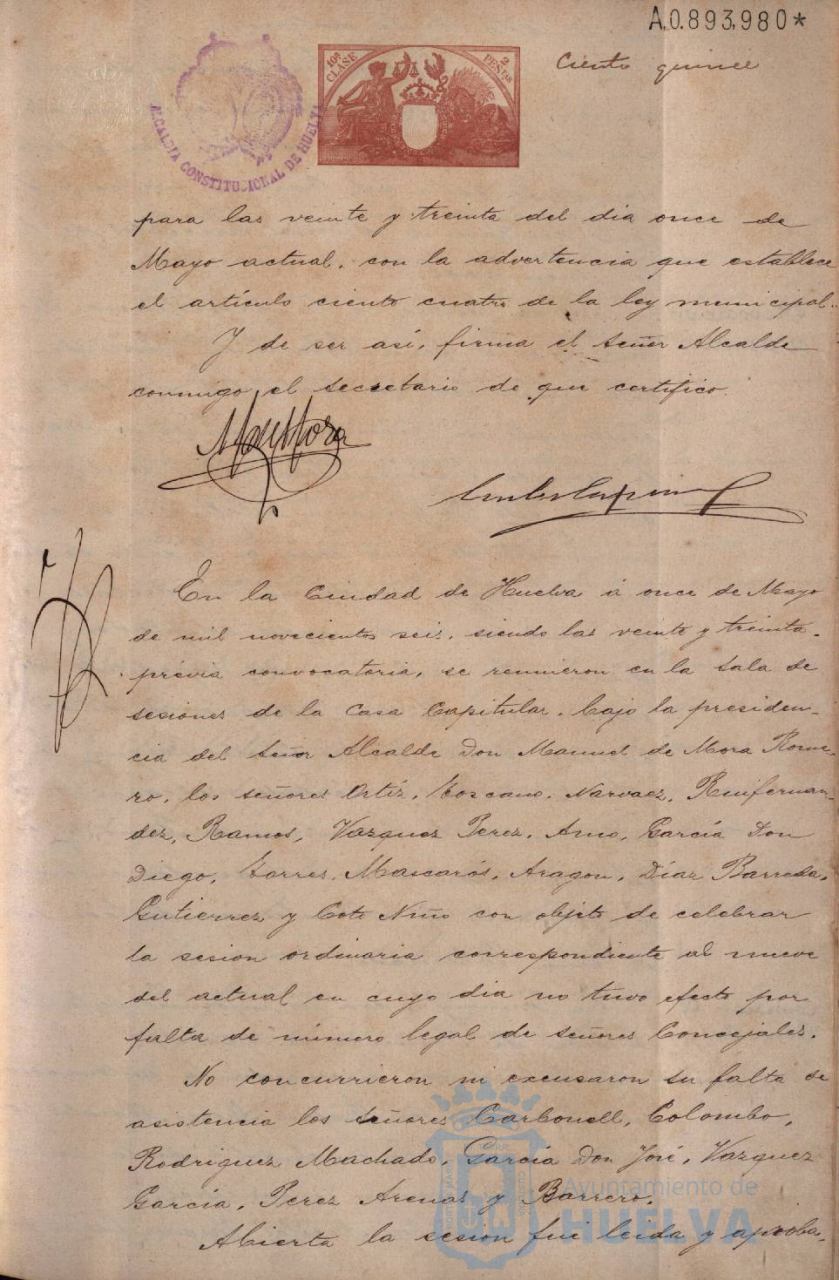 A.0.893,980*
Ciento quince
10ª CLASE
2 PESETAS
ALCALDIA CONSTITUCIONAL DE HUELVA
para las veinte y treinta del dia once de
Mayo actual, con la advertencia que establece
el artículo ciento cuatro de la ley municipal.
Y de ser así, firma el señor Alcalde
conmigo el secretario de que certifico.
En la Ciudad de Huelva á once de Mayo
de mil novecientos seis, siendo las veinte y treinta
prévia convocatoria, se reunieron en la Sala de
sesiones de la Casa Capitular, bajo la presiden-
cia del Señor Alcalde Don Manuel de Mora Rome-
ro, los señores Ortíz, Toscano, Narvaez, Ruifernan-
dez, Ramos, Vazquez Perez, Amo, García Don
Diego, Torres, Mascarós, Aragon, Díaz Barreda,
Gutierrez y Coto Niño con objeto de celebrar
la sesion ordinaria correspondiente al nueve
del actual en cuyo dia no tuvo efecto por
falta de número legal de señores Concejales.
No concurrieron ni excusaron su falta de
asistencia los señores Carbonell, Colombo,
Rodriguez Machado, García Don José, Vazquez
García, Perez Arenas y Barrero.
Abierta la sesion fué leida y aproba-
Ayuntamiento de
HUELVA